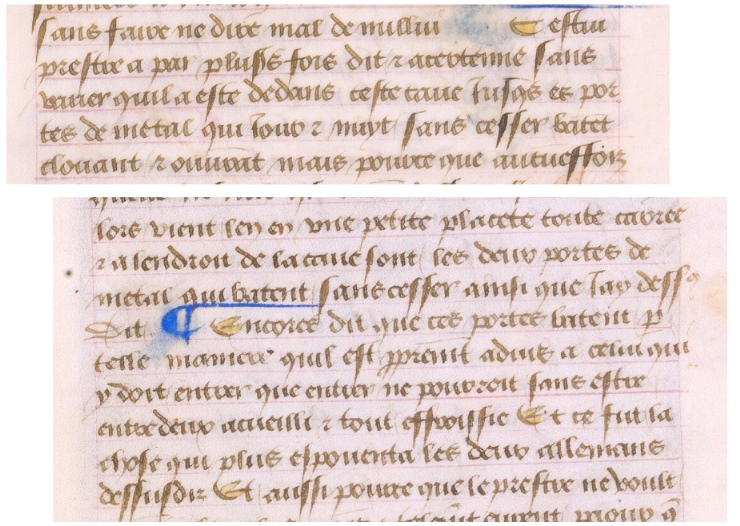 sans faire ne dire mal de nulluy Cestui
prestre a par plusss fois dit ⁊ acertenne sans
varier quil a este dedans ceste cave Jusqs es por
tes de metal qui Jour ⁊ nuyt sans cesser batet
clouant ⁊ ouurat mais pource que autueffoiz
lors vient len en vne petite placete toute cauree
⁊ a lendroit de la caue sont les deux portes de
metal qui batent sans cesser ainsi que Jay dess
dit ¶ Encores dit que ces portes batent p
telle maniere quil est pprement aduis a celui qui
y doit entrer que entrer ne pourroit sans estre
entredeux acueilli ⁊ tout effroissie Et ce fut la
chose qui plus espouenta les deux allemans
dessusdiz Et aussi pource que le prestre ne voult